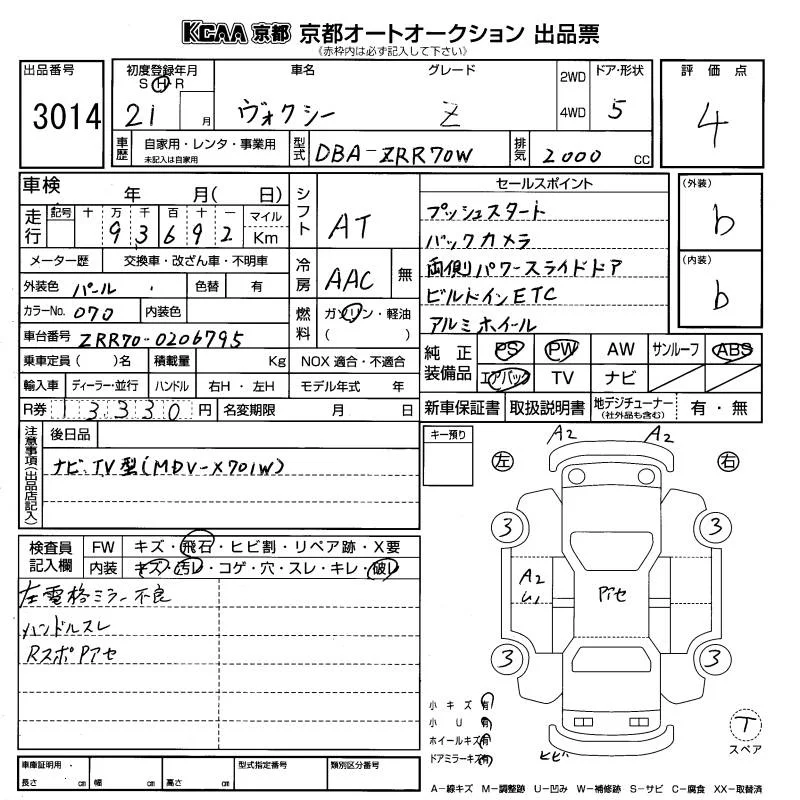 KCAA 京都 京都オートオークション 出品票
《赤枠内は必ず記入して下さい》
出品番号
3014
初度登録年月
S H R
21 月
車名
ヴォクシー
グレード
Z
2WD
4WD
ドア・形状
5
評価点
4
車歴
自家用・レンタ・事業用
未記入は自家用
型式
DBA-ZRR70W
排気
2000 CC
車検 年 月( 日)
走行
記号 十 万 千 百 十 一 マイル
9 3 6 9 2 Km
シフト
AT
セールスポイント
プッシュスタート
バックカメラ
両側パワースライドドア
ビルドインETC
アルミホイール
(外装)
b
(内装)
b
メーター歴 交換車・改ざん車・不明車
冷房
AAC 無
外装色 パール 色替 有
カラーNo. 070 内装色
燃料
ガソリン・軽油
( )
車台番号 ZRR70-0206795
乗車定員( )名 積載量 Kg NOX 適合・不適合
輸入車 ディーラー・並行 ハンドル 右H・左H モデル年式 年
R券 13330円 名変期限 月 日
純正装備品
PS PW AW サンルーフ ABS
エアバック TV ナビ
新車保証書 取扱説明書 地デジチューナー (社外品も含む) 有・無
注意事項(出品店記入)
後日品
ナビ、TV型(MDV-X701W)
キー預り
A2 A2
左 右
3 3
A2
U1
Pアセ
3 3
検査員記入欄
FW キズ・飛石・ヒビ割・リペア跡・X要
内装 キズ・汚レ・コゲ・穴・スレ・キレ・破レ
左電格ミラー不良
ハンドルスレ
RスポPアセ
小キズ 有
小 U 有
ホイールキズ 有
ドアミラーキズ 有
ヒビ
T
スペア
車庫証明用
長さ cm 幅 cm 高さ cm
型式指定番号
類別区分番号
A-線キズ M-調整跡 U-凹み W-補修跡 S-サビ C-腐食 XX-取替済